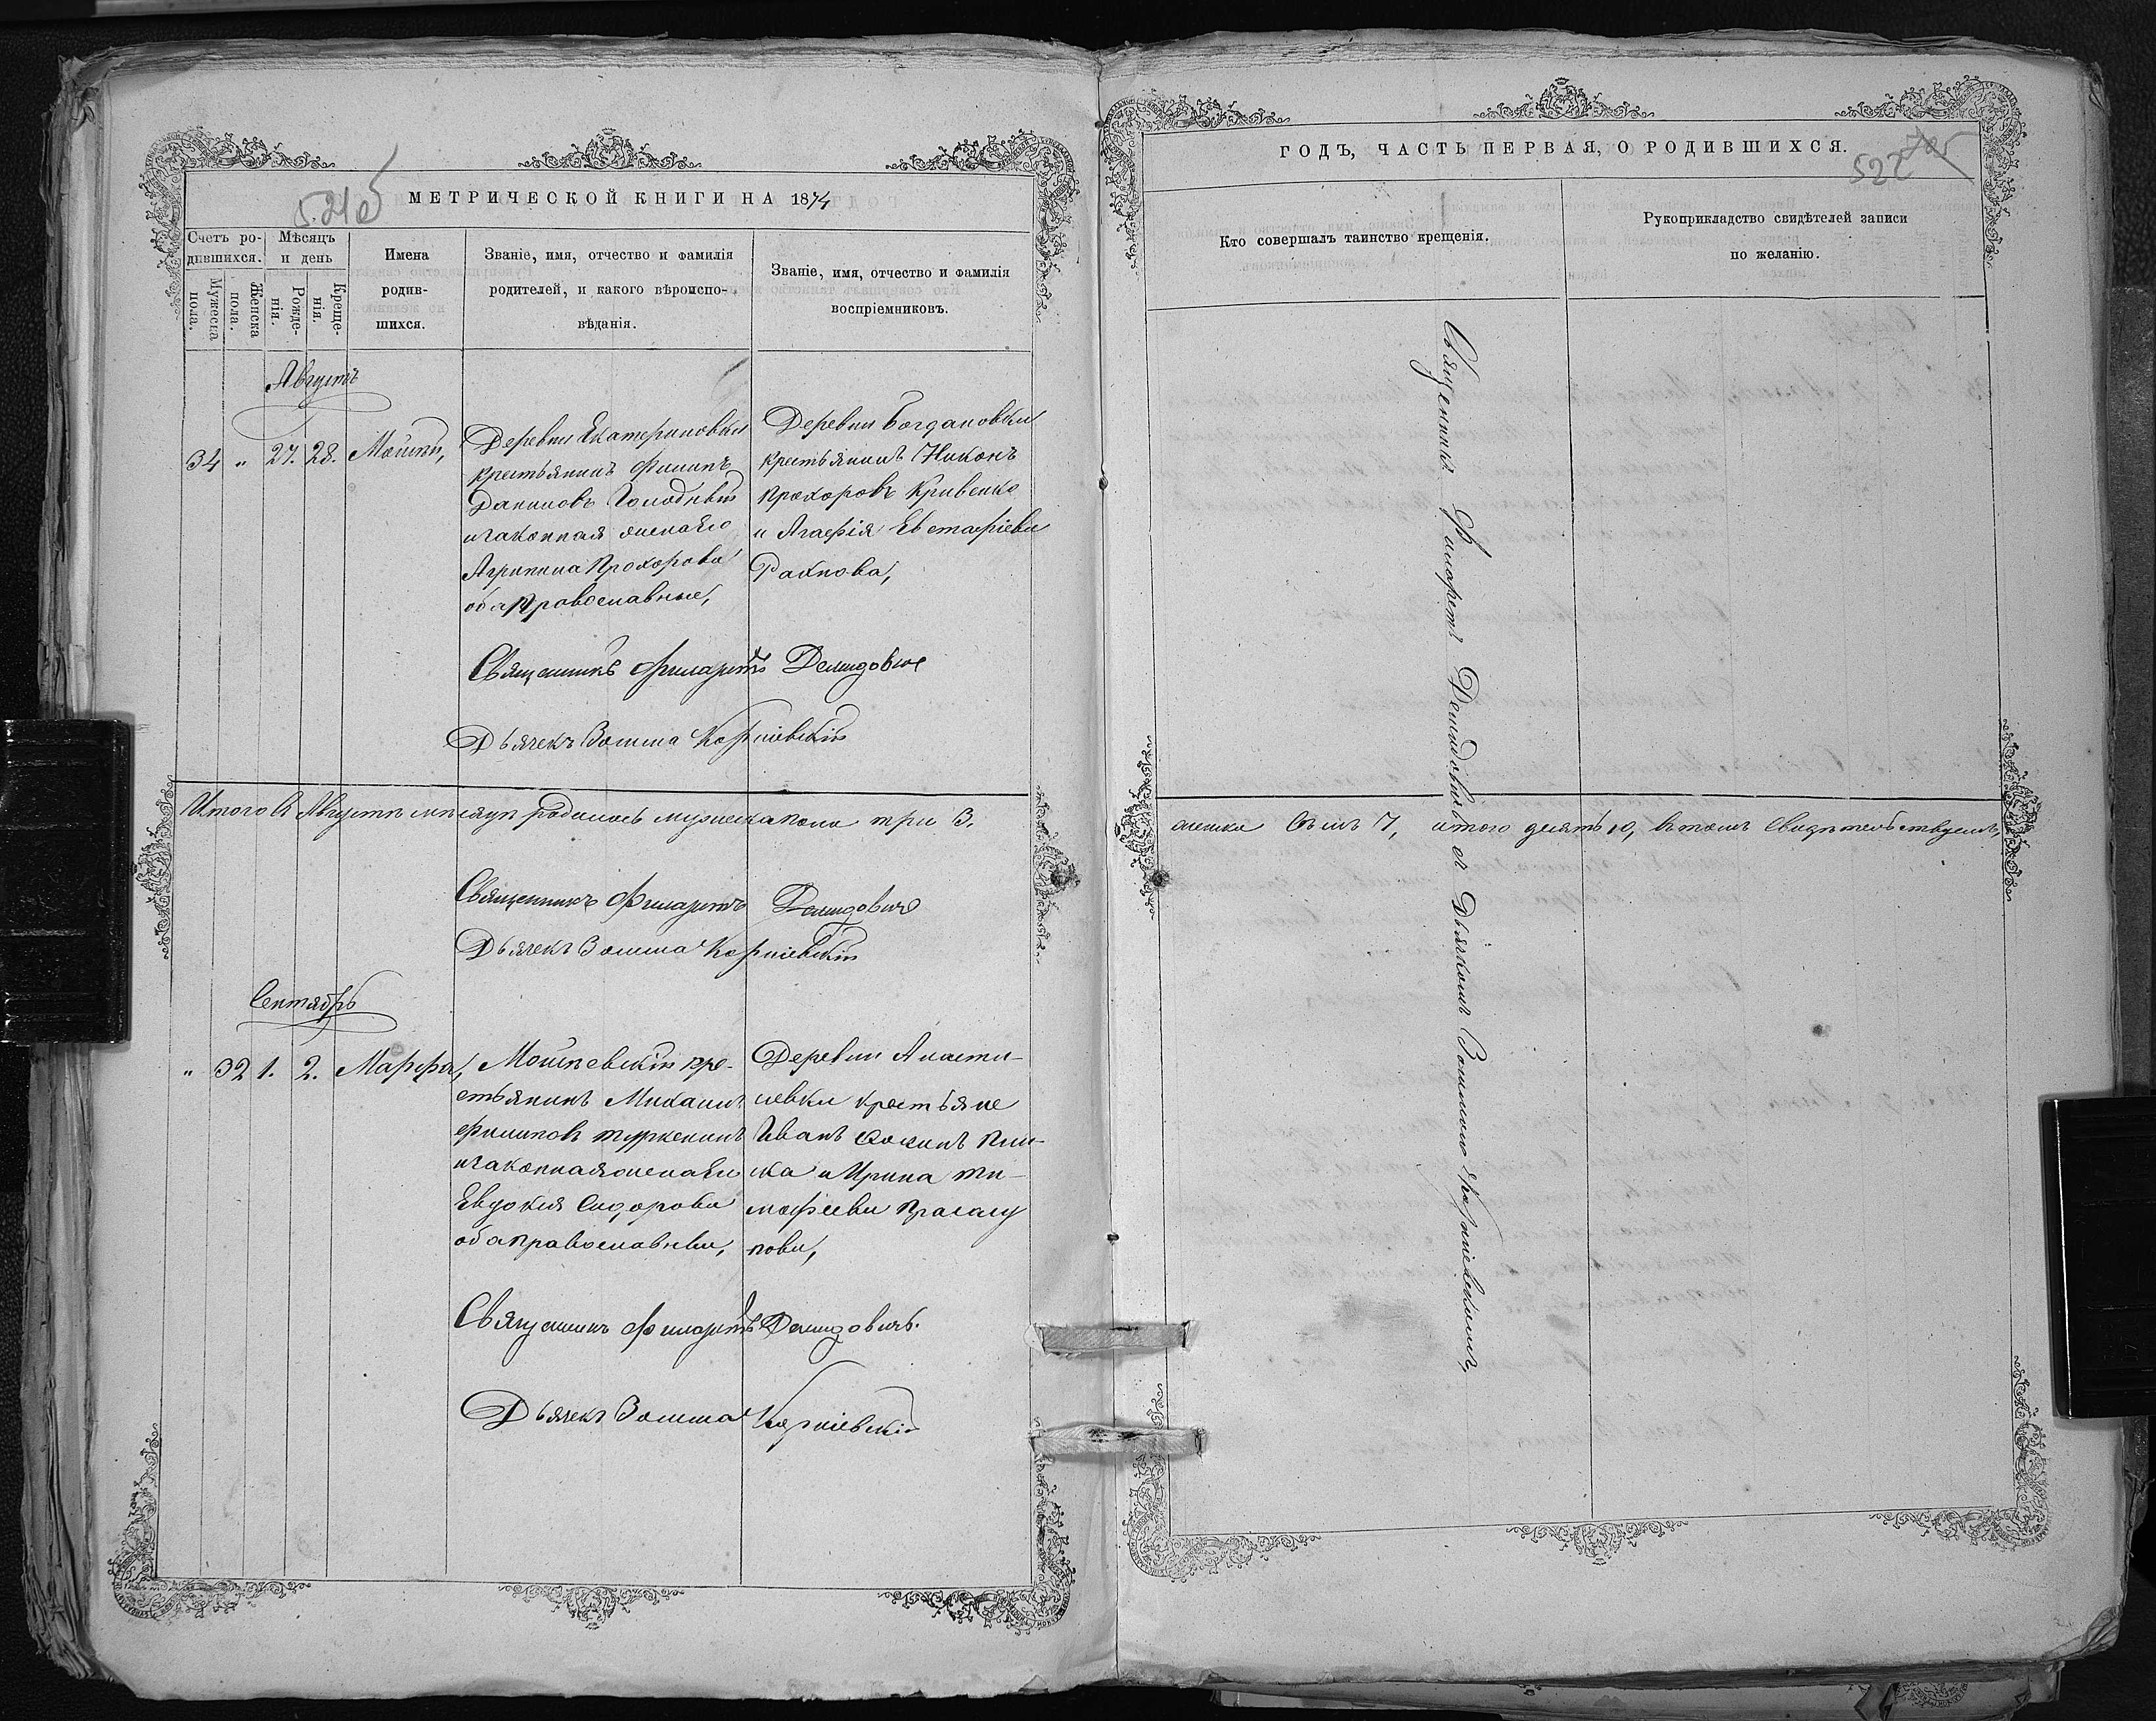 521об
МЕТРИЧЕСКОЙ КНИГИ НА 1874
Счетъ ро-
дившихся.
Мужеска
пола.
Женска
пола.
Мѣсяцъ
и день
Рожде-
нія.
Креще-
нія.
Имена
родив-
шихся.
Званіе, имя, отчество и фамилія
родителей, и какого вѣроиспо-
вѣданія.
Званіе, имя, отчество и фамилія
воспріемниковъ.
Августъ
34 „ 27. 28. Моисей,
Деревни Екатериновки
крестьянинъ Филипъ
Даниловъ Голодный
и законная жена его
Агрипина Прохорова
оба православные,
Деревни Богдановки
крестьянинъ Никонъ
Прохоровъ Кривенко
и Агафія Евстафіева
Священникъ Филаретъ Демидовичъ
Дьячекъ Зосима Корніевскій
Итого въ Августѣ мѣсяцѣ родилось мужеска пола три 3.
Священникъ Филаретъ Демидовичъ
Дьячекъ Зосима Корніевскій
Сентябрь
„ 32 1. 2. Марфа,
кре-
стьянинъ Михаилъ
Филиповъ
и законная жена его
Евдокия Сидорова
оба православные,
Деревни
крестьяне
Иванъ
и Ирина Ти-
мофеева
Священникъ Филаретъ Демидовичъ.
Дьячекъ Зосима Корніевскій
ГОДЪ, ЧАСТЬ ПЕРВАЯ, О РОДИВШИХСЯ.
522
Кто совершалъ таинство крещенія.
Рукоприкладство свидѣтелей записи
по желанію.
Священникъ Филаретъ Демидовичъ съ Дьячкомъ Зосимою Корніевскимъ,
женска семь 7, итого десять 10, въ томъ свидѣтельствуемъ,